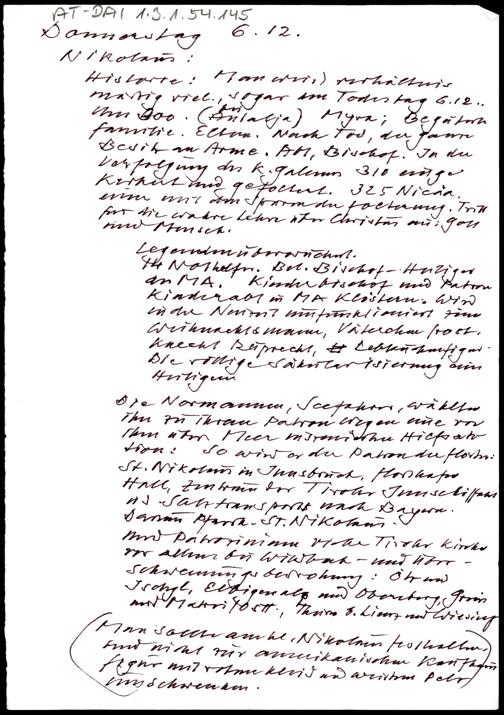 AT-DAI 1.3.1.54.145
Donnerstag 6.12.
Nikolaus:
Historie: Man weiß verhältnis
mäßig viel, sogar um Todestag 6.12..
Um 300. (bei Myra; Begüterte
Familie. Eltern. Nach Tod, der ganze
Besitz an Arme. Abt, Bischof. In der
Verfolgung des K. Galerius 310 einge
kerkert und gefoltert. 325 Nicäa,
einer mit den Spuren der Folterung. Tritt
für die wahre Lehre über Christus ein: Gott
und Mensch.
Legendenüberwuchert.
14 Nothelfer. Bel. Bischof-Heiliger
des MA. Kinderbischof und Patron
Kinderabt in MA Klöstern. Wird
in der Neuzeit umfunktioniert zum
Weihnachtsmann, Väterchen Frost,
Knecht Ruprecht, Lebkuchenfigur.
Die völlige Säkularisierung eines
Heiligen.
Die Normannen, Seefahrer, wählten
ihn zu ihrem Patron wegen eine
ihm über Meer
tion: So wird er der Patron der Flößer:
St. Nikolaus in Innsbruck,
Hall, Zentrum der Tiroler Innschiffahrt
des Salztransports nach Bayern.
Darum Pfarrk. St. Nikolaus.
und Patrozinium viele Tiroler Kirchen
vor allem bei Wildbach- und Über-
schwemmungsbedrohung: Ötz und
Ischgl, Elbigenalp und Obernberg, Grins
und Matrei Ostt., Thurn b. Lienz und Wiesing
Man sollte am hl. Nikolaus festhalten
und nicht zur amerikanischen Kaufhaus
figur mit rotem Kleid und weißem Pelz
umschwenken.